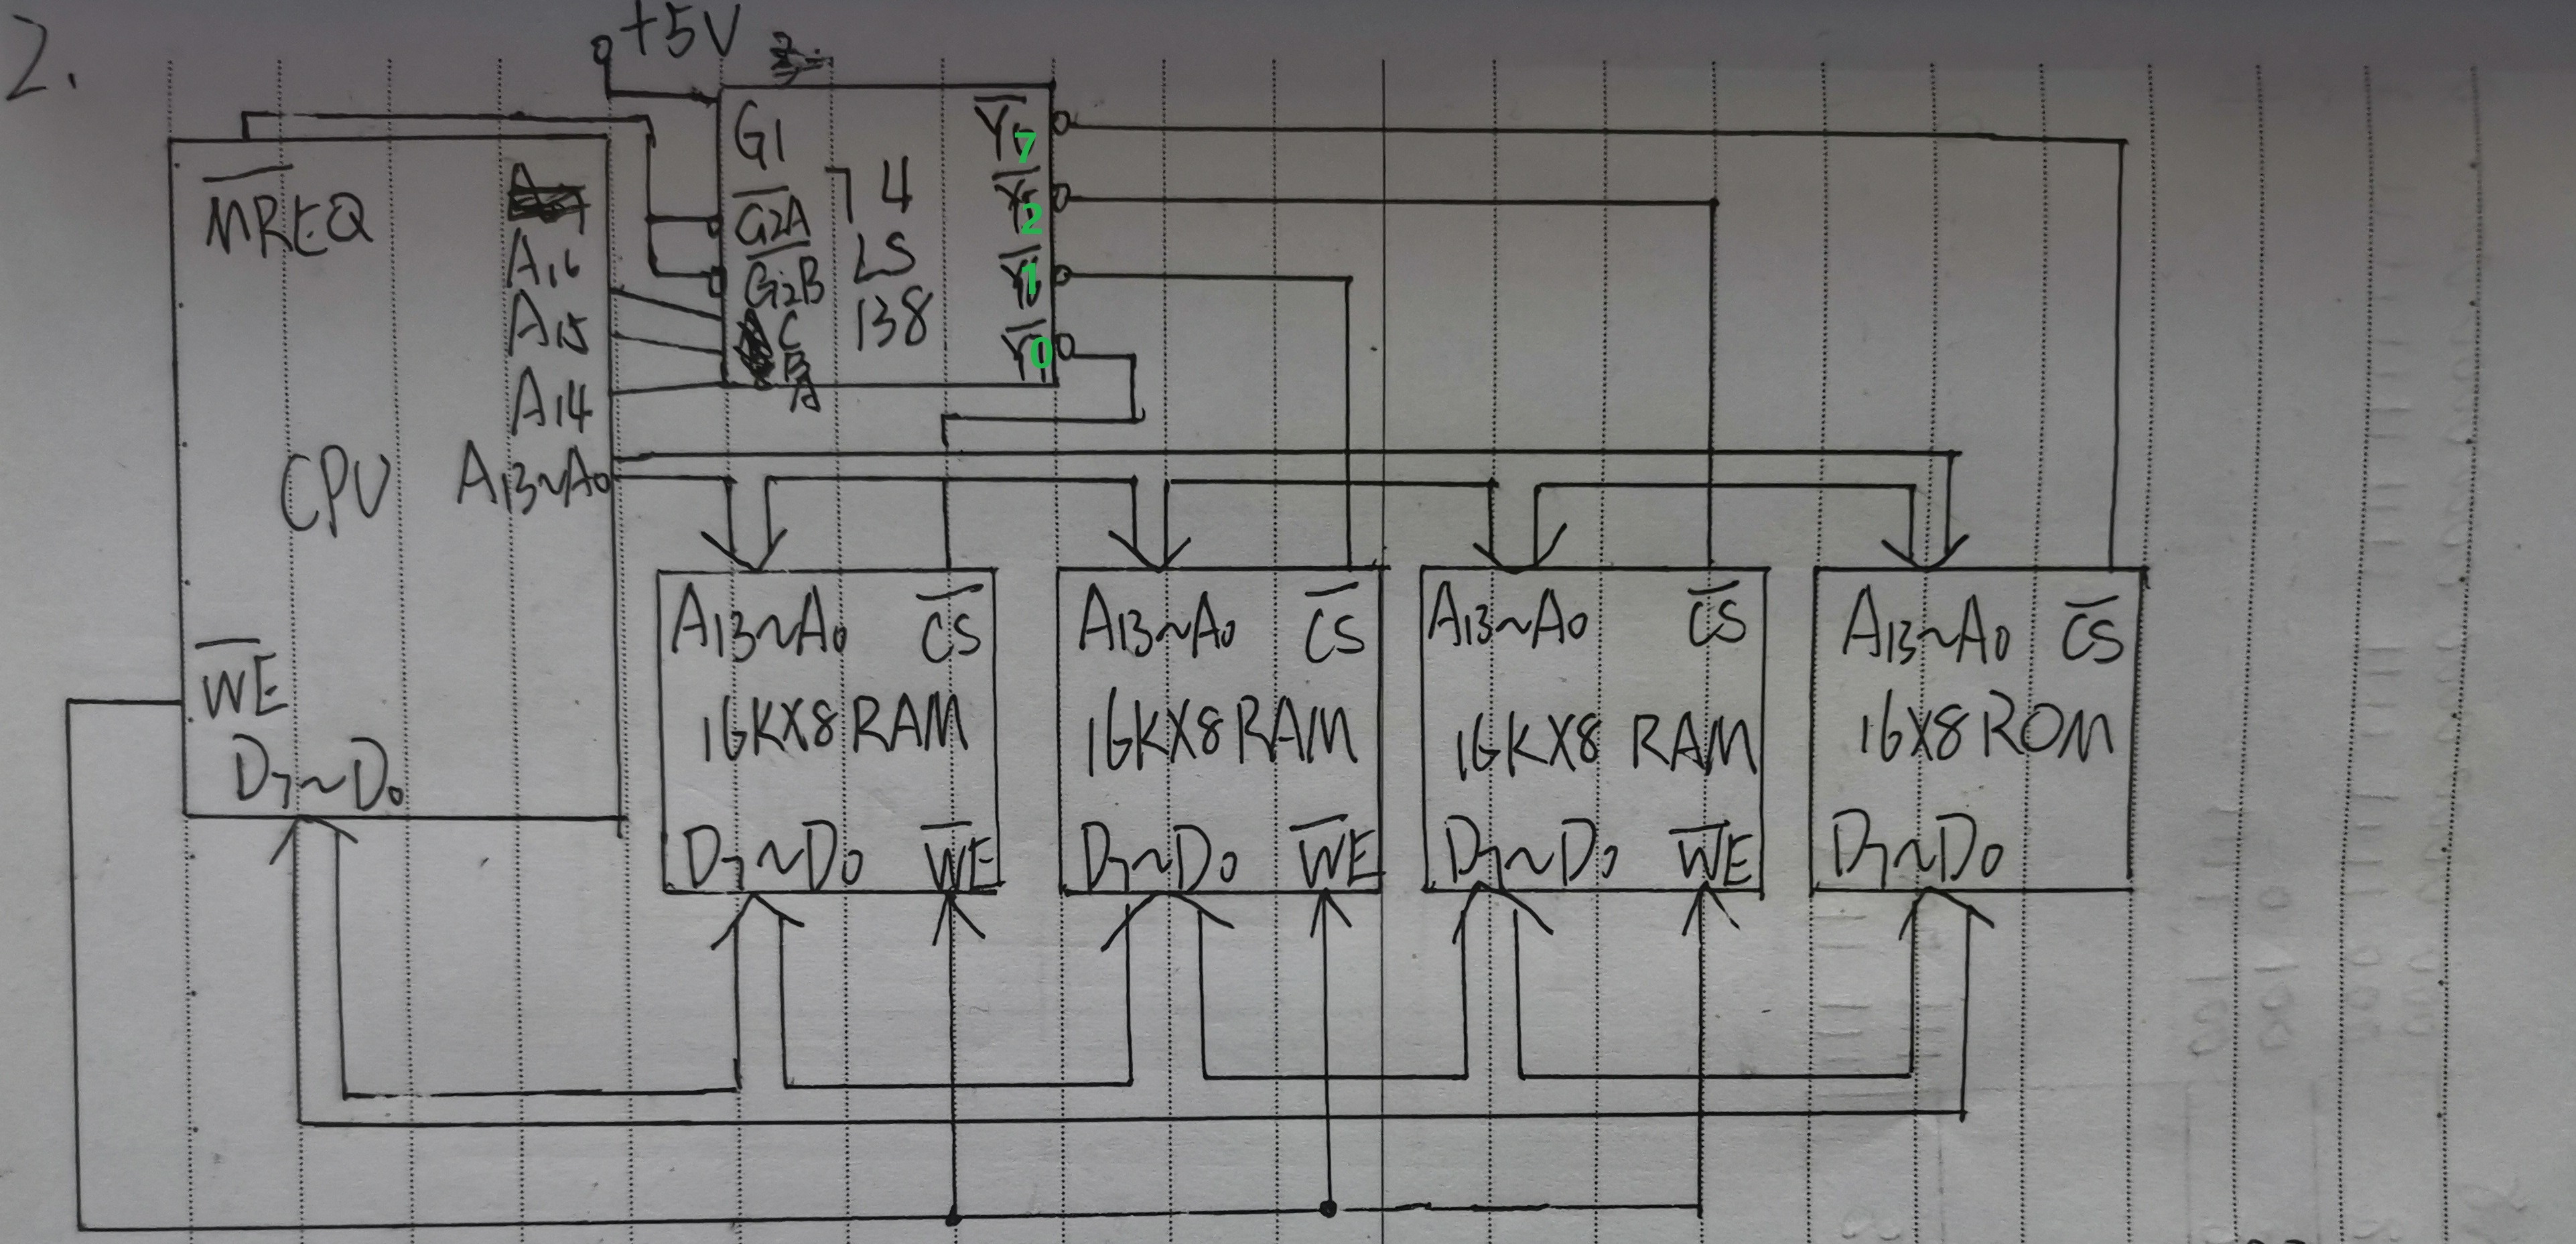 2.
+5V
G1
7
MREQ
A16
A15
A14
A13~A0
CPU
WE
D7~D0
G2A
G2B
C
B
A
74
LS
138
Y
7
2
Y
1
Y
0
A13~A0 CS
16KX8 RAM
D7~D0 WE
A13~A0 CS
16KX8 RAM
D7~D0 WE
A13~A0 CS
16KX8 RAM
D7~D0 WE
A13~A0 CS
16X8 ROM
D7~D0